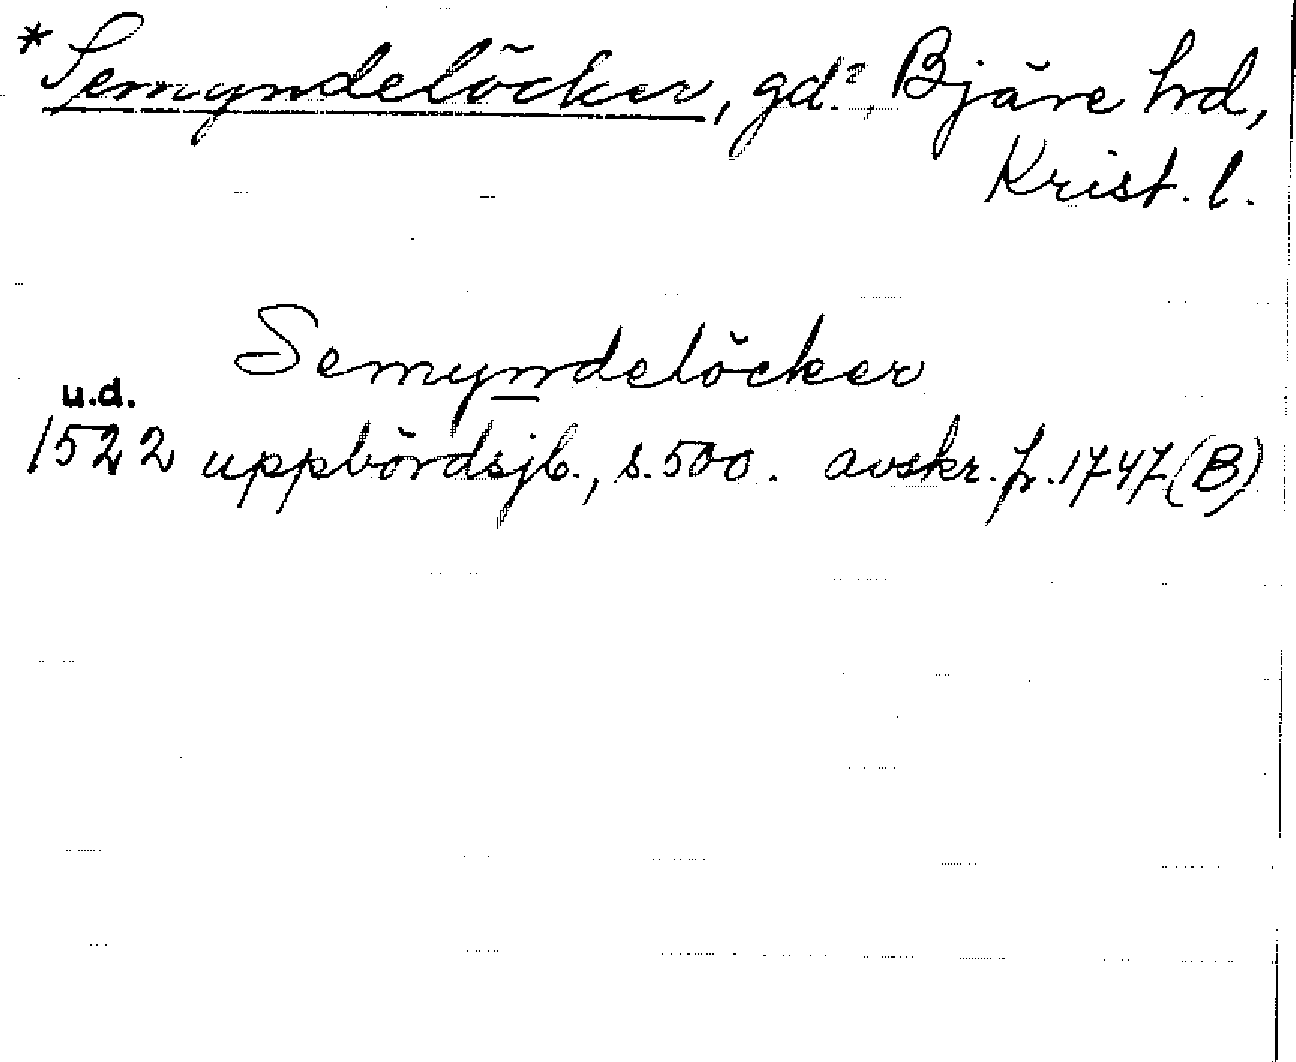 *Semyndelöcker, gd?, Bjäre hrd,
Krist. l.
Semyndelöcker
u.d.
1522 uppbördsjb., s. 500. avskr. fr. 1747 (B)